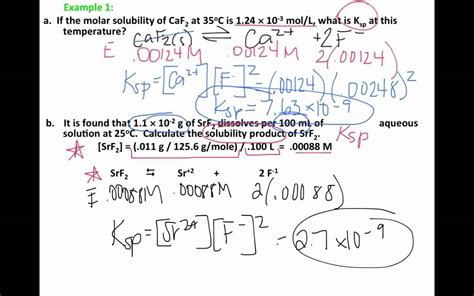 Example 1:
a. If the molar solubility of CaF₂ at 35°C is 1.24 × 10⁻³ mol/L, what is Ksp at this
temperature?
CaF₂(s) ⇌ Ca²⁺ + 2F⁻
E .00124M .00124 M 2(.00124)
Ksp = [Ca²⁺][F⁻]² = (.00124)(.00248)²
Ksp = 7.63 × 10⁻⁹
b. It is found that 1.1 × 10⁻² g of SrF₂ dissolves per 100 mL of aqueous
solution at 25°C. Calculate the solubility product of SrF₂. Ksp
[SrF₂] = (.011 g / 125.6 g/mole) / .100 L = .00088 M
SrF₂ ⇆ Sr⁺² + 2 F⁻¹
E .00088M .00088M 2(.00088)
Ksp = [Sr²⁺][F⁻]² = 2.7 × 10⁻⁹